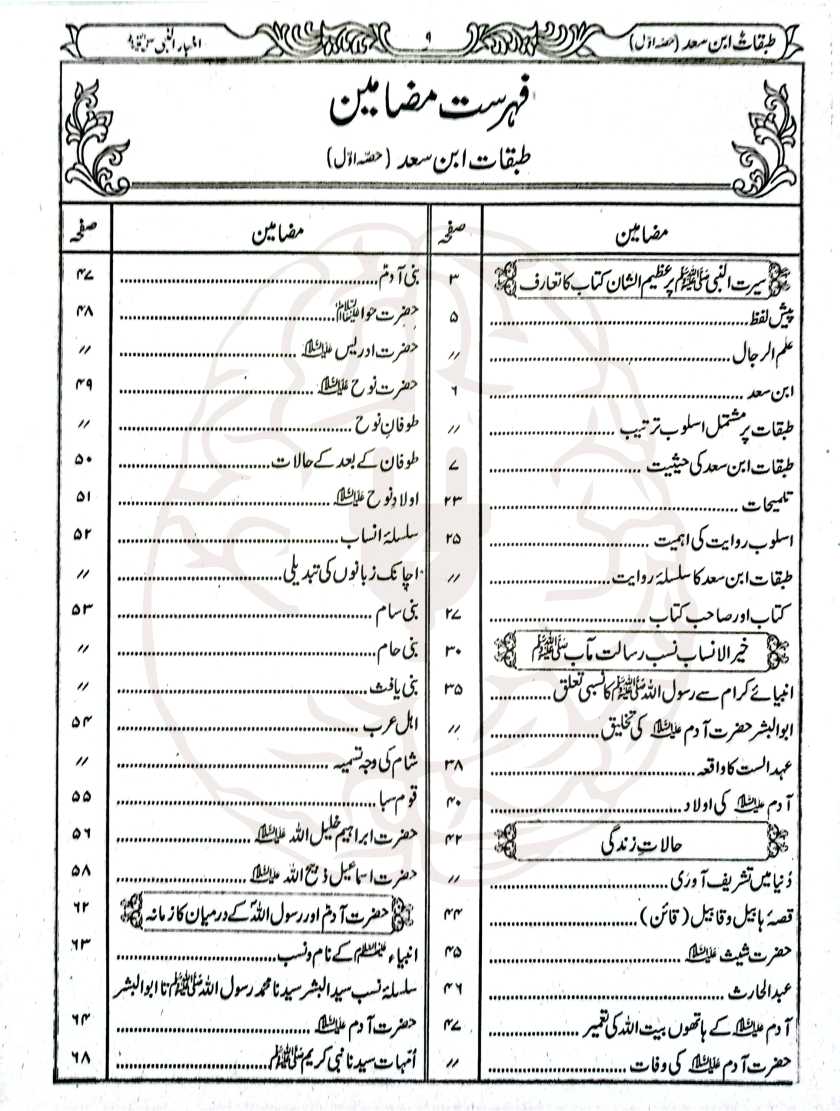 طبقات ابن سعد (حصّہ اوّل) ۹ اخبار النبی ﷺ
فہرست مضامین
طبقات ابن سعد (حصّہ اوّل)
مضامین صفحہ
سیرت النبی ﷺ پر عظیم الشان کتاب کا تعارف ۳
پیش لفظ ۵
علم الرجال 〃
ابن سعد ۶
طبقات پر مشتمل اسلوب ترتیب 〃
طبقات ابن سعد کی حیثیت ۷
تلمیحات ۲۳
اسلوب روایت کی اہمیت ۲۵
طبقات ابن سعد کا سلسلۂ روایت 〃
کتاب اور صاحب کتاب ۲۷
خیر الانساب نسب رسالت مآب ﷺ ۳۰
انبیائے کرام سے رسول اللہ ﷺ کا نسبی تعلق ۳۵
ابوالبشر حضرت آدم علیہ السلام کی تخلیق 〃
عہد الست کا واقعہ ۳۸
آدم علیہ السلام کی اولاد ۴۰
حالاتِ زندگی ۴۲
دُنیا میں تشریف آوری 〃
قصۂ ہابیل و قابیل (قائن) ۴۴
حضرت شیث علیہ السلام ۴۵
عبدالحارث ۴۶
آدم علیہ السلام کے ہاتھوں بیت اللہ کی تعمیر ۴۷
حضرت آدم علیہ السلام کی وفات 〃
مضامین صفحہ
بنی آدم ۴۷
حضرت حوا علیہا السلام ۴۸
حضرت ادریس علیہ السلام 〃
حضرت نوح علیہ السلام ۴۹
طوفانِ نوح 〃
طوفان کے بعد کے حالات ۵۰
اولادِ نوح علیہ السلام ۵۱
سلسلۂ انساب ۵۲
اچانک زبانوں کی تبدیلی 〃
بنی سام ۵۳
بنی حام 〃
بنی یافث 〃
اہل عرب ۵۴
شام کی وجہ تسمیہ 〃
قوم سبا ۵۵
حضرت ابراہیم خلیل اللہ علیہ السلام ۵۶
حضرت اسماعیل ذبیح اللہ علیہ السلام ۵۸
حضرت آدمؑ اور رسول اللہؐ کے درمیان کا زمانہ ۶۲
انبیاء علیہم السلام کے نام و نسب ۶۳
سلسلہ نسب سید البشر سیدنا محمد رسول اللہ ﷺ تا ابوالبشر
حضرت آدم علیہ السلام ۶۴
اُمّہات سیدنا نبی کریم ﷺ ۶۸